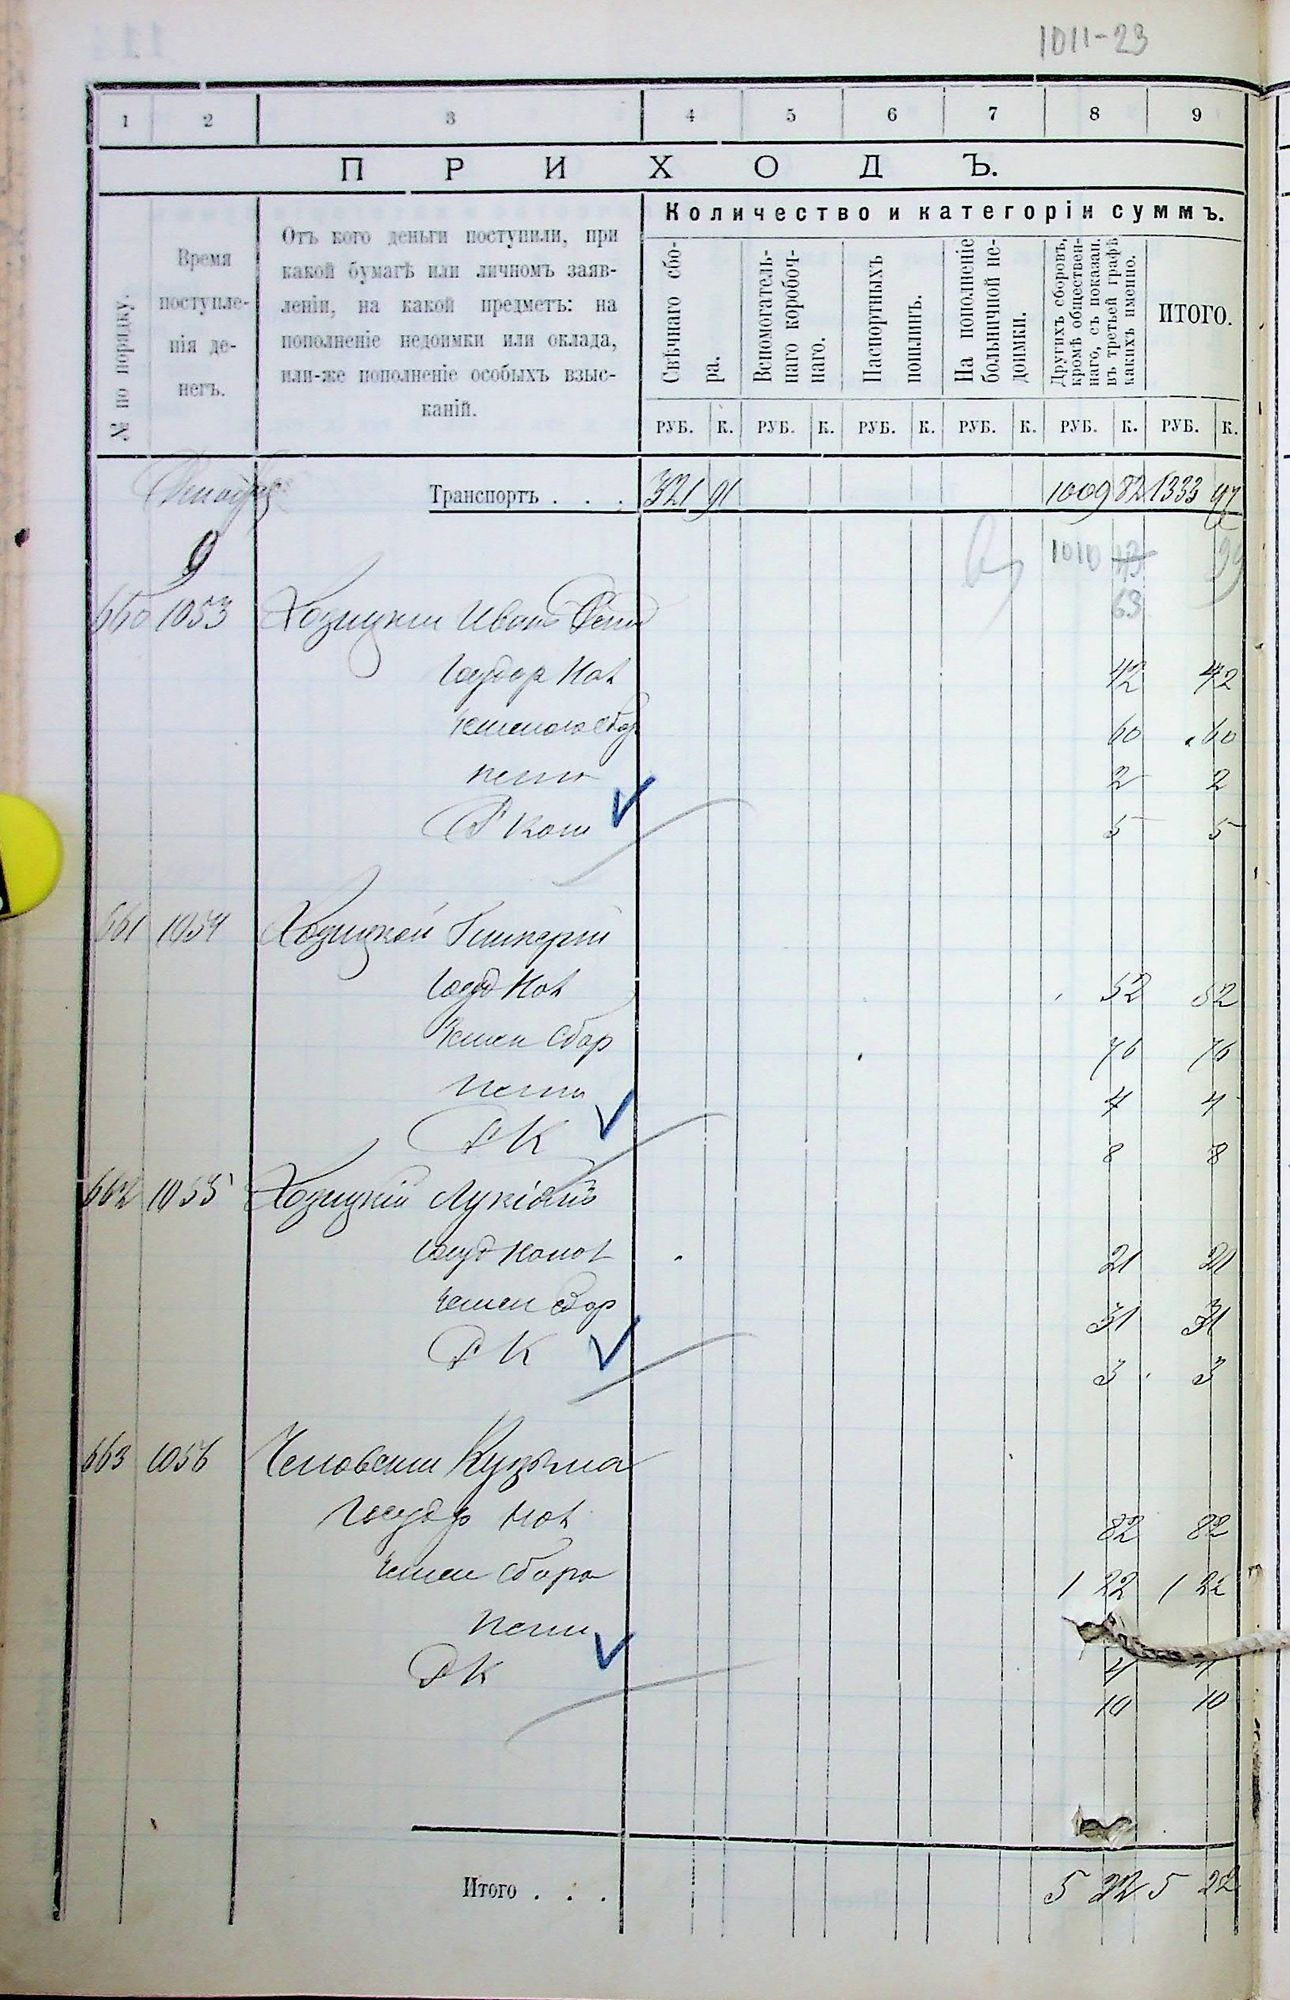 1011-23
1 2 3 4 5 6 7 8 9
ПРИХОДЪ.
№ по порядку.
Время
поступле-
нія де-
негъ.
Отъ кого деньги поступили, при
какой бумагѣ или личномъ заяв-
леніи, на какой предметъ: на
пополненіе недоимки или оклада,
или-же пополненіе особыхъ взыс-
каній.
Количество и категоріи суммъ.
Свѣчнаго сбо-
ра.
Вспомогатель-
наго коробоч-
наго.
Паспортныхъ
пошлинъ.
На пополненіе
больничной не-
доимки.
Другихъ сборовъ,
кромѣ обществен-
наго, съ показан.
въ третьей графѣ
какихъ именно.
ИТОГО.
РУБ. К. РУБ. К. РУБ. К. РУБ. К. РУБ. К. РУБ. К.
Транспортъ . . . 321 91 1009 82 1333 97
9 1010
63
660 1053 Хозицкій Иванъ
42 42
60 60
пени 2 2
5 5
661 1054
Госуд Нал 52 52
Земен сбор 76 76
Пени 4 4
Р К 8 8
662 1055 Хозицкій Лукіанъ
Госуд Налог 21 21
Земен сбор 31 31
Р К 3 3
663 1056 Кузьма
Госудр Нал 82 82
Земен сбора 1 22 1 22
Пени 4 4
Р К 10 10
Итого . . . 5 22 5 22